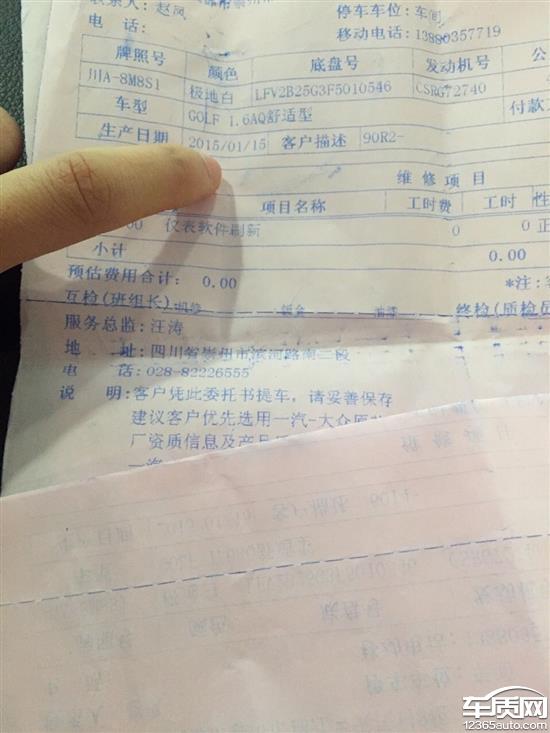 联系人: 赵凤
停车车位: 车间
电 话:
移动电话: 13880357719
牌照号 颜色 底盘号 发动机号 公
川A-8M8S1 极地白 LFV2B25G3F5010546 CSRG72740
车型 GOLF 1.6AQ舒适型 付款
生产日期 2015/01/15 客户描述 90R2-
维修项目
项目名称 工时费 工时 性
00 仪表软件刷新 0 0 正
小计 0.00
预估费用合计: 0.00 *注:
互检(班组长) 机修 钣金 油漆 终检(质检员
服务总监: 汪涛
地 址: 四川省崇州市滨河路南二段
电 话: 028-82226555
说 明: 客户凭此委托书提车, 请妥善保存
建议客户优先选用一汽-大众原
厂资质信息及产品
一汽
车质网
12365auto.com